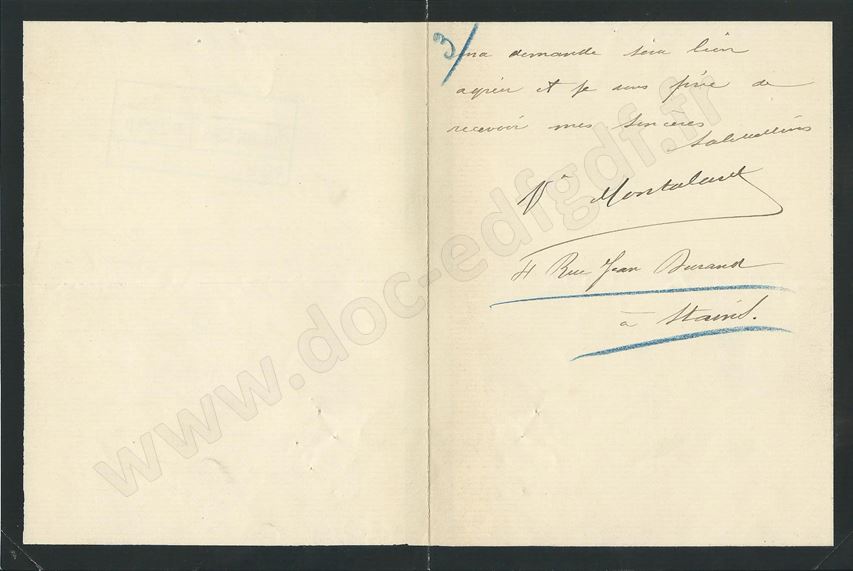 3/
ma demande sera bien
agréée et je vous prie de
recevoir mes sincères
salutations
Vve
4 Rue Jean Durand
à Stains.
www.doc-edfgdf.fr